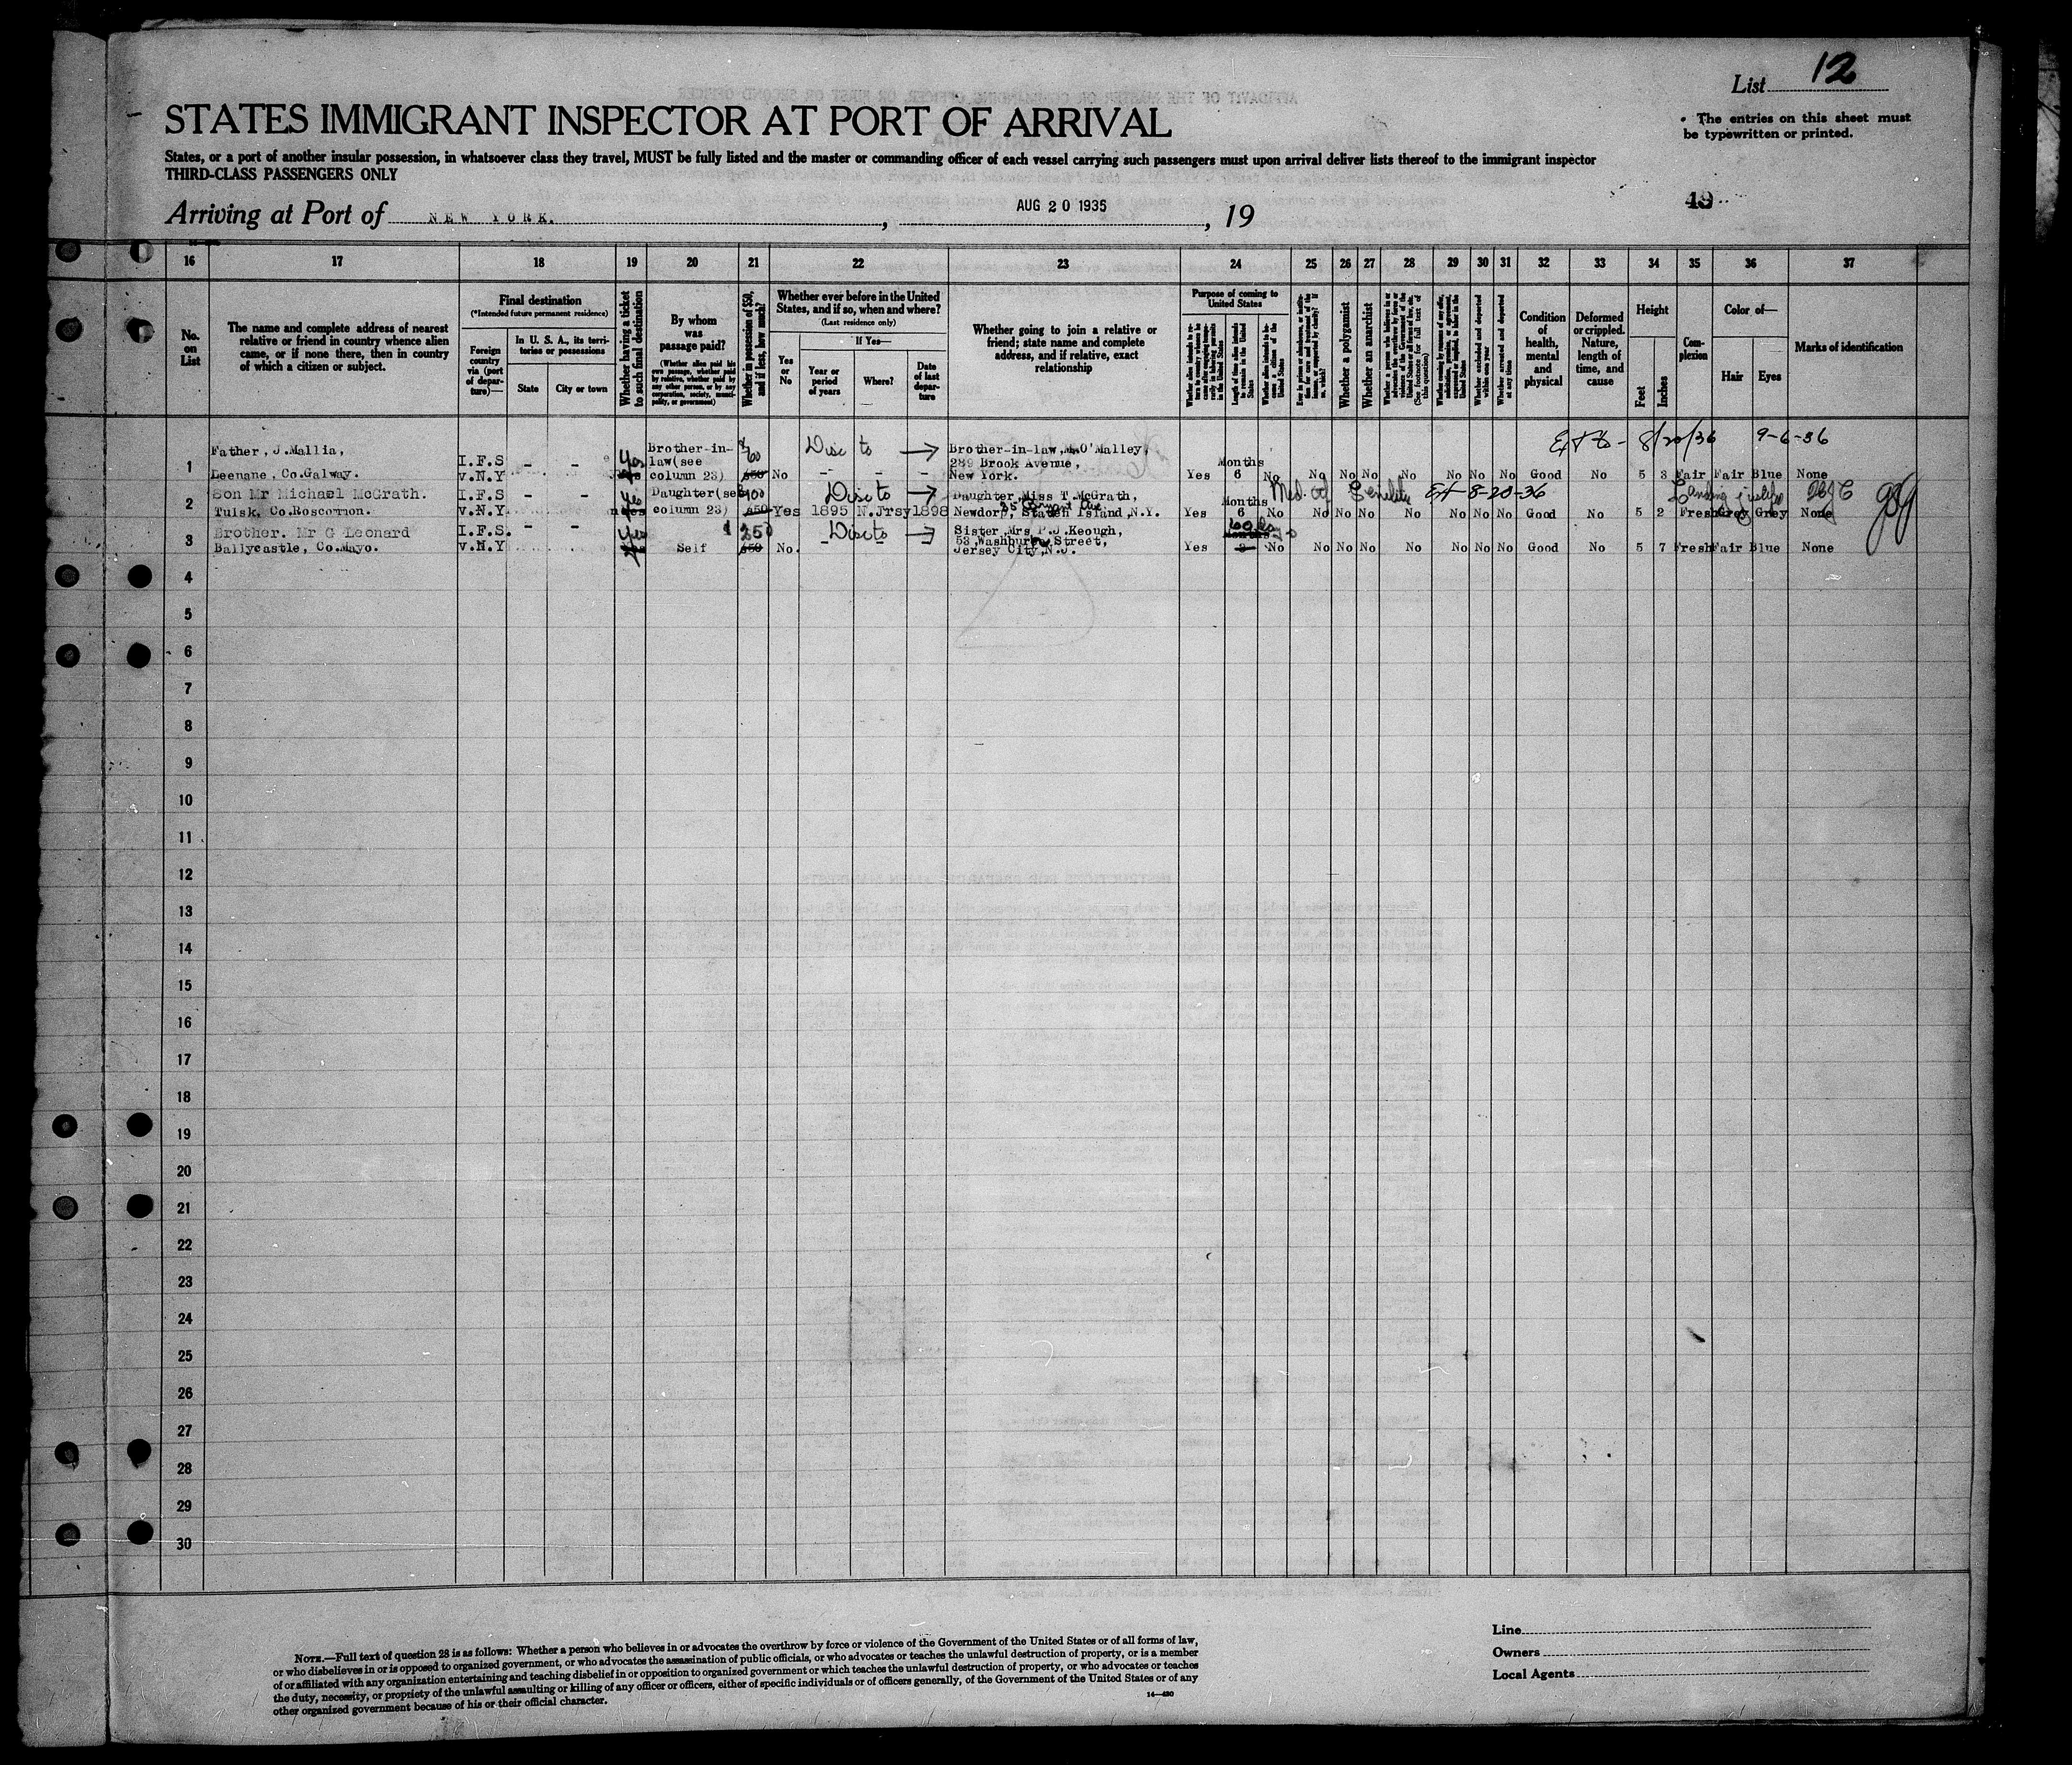 List 12
STATES IMMIGRANT INSPECTOR AT PORT OF ARRIVAL
• The entries on this sheet must
be typewritten or printed.
States, or a port of another insular possession, in whatsoever class they travel, MUST be fully listed and the master or commanding officer of each vessel carrying such passengers must upon arrival deliver lists thereof to the immigrant inspector
THIRD-CLASS PASSENGERS ONLY
49
Arriving at Port of NEW YORK. , AUG 20 1935 , 19
16 17 18 19 20 21 22 23 24 25 26 27 28 29 30 31 32 33 34 35 36 37
No. on List
The name and complete address of nearest
relative or friend in country whence alien
came, or if none there, then in country
of which a citizen or subject.
Final destination
(*Intended future permanent residence)
Foreign country via (port of departure)—
In U. S. A., its territories or possessions
State
City or town
Whether having a ticket to such final destination
By whom was passage paid?
(Whether alien paid his own passage, whether paid by relative, whether paid by any other person, or by any corporation, society, municipality, or government)
Whether in possession of $50, and if less, how much?
Whether ever before in the United States, and if so, when and where?
(Last residence only)
Yes or No
If Yes—
Year or period of years
Where?
Date of last departure
Whether going to join a relative or
friend; state name and complete
address, and if relative, exact
relationship
Purpose of coming to United States
Whether a polygamist
Whether an anarchist
Condition of health, mental and physical
Deformed or crippled. Nature, length of time, and cause
Height
Feet
Inches
Complexion
Color of—
Hair
Eyes
Marks of identification
Father, J.Mallia, Brother-in- 60 Disc to → Brother-in-law, M.O'Malley, 8/20/36 9-6-36
1 Leenane, Co.Galway. I.F.S v.N.Y - - Yes law(see column 23) $50 No - - - 289 Brook Avenue, New York. Yes Months 6 No No No No No No No No Good No 5 3 Fair Fair Blue None
Son Mr Michael McGrath. I.F.S - - Daughter(see Disc to → Daughter, Miss T McGrath, Med. Senility Ext 8-20-36
2 Tulsk, Co.Roscommon. v.N.Y. Yes column 23) $50 Yes 1895 N.Jrsy 1898 Newdorp, Staten Island, N.Y. Yes Months 6 No No No No No No No No Good No 5 2 Fresh Grey Grey None
Brother. Mr G Leonard I.F.S. - - yes 250 Disc to → Sister, Mrs P.J.Keough,
3 Ballycastle, Co.Mayo. v.N.Y Self $50 No. 53, Washburn Street, Jersey City, N.J. Yes Months 3 No No No No No No No No Good No 5 7 Fresh Fair Blue None
4
5
6
7
8
9
10
11
12
13
14
15
16
17
18
19
20
21
22
23
24
25
26
27
28
29
30
NOTE.—Full text of question 28 is as follows: Whether a person who believes in or advocates the overthrow by force or violence of the Government of the United States or of all forms of law,
or who disbelieves in or is opposed to organized government, or who advocates the assassination of public officials, or who advocates or teaches the unlawful destruction of property, or is a member
of or affiliated with any organization entertaining and teaching disbelief in or opposition to organized government or which teaches the unlawful destruction of property, or who advocates or teaches
the duty, necessity, or propriety of the unlawful assaulting or killing of any officer or officers, either of specific individuals or of officers generally, of the Government of the United States or of any
other organized government because of his or their official character.
14—430
Line
Owners
Local Agents